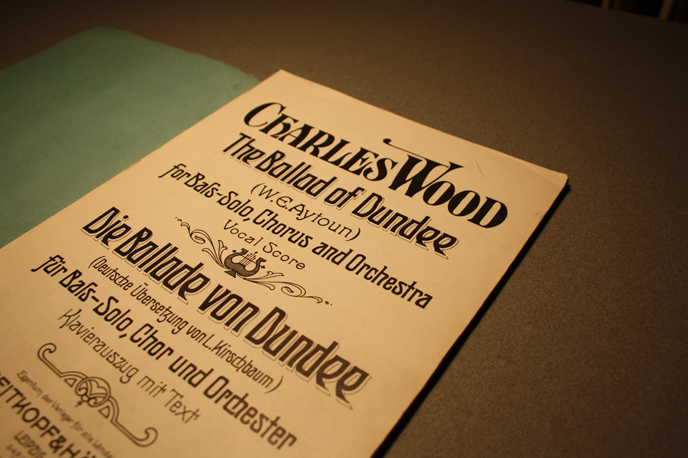 CHARLES WOOD
The Ballad of Dundee
(W.E.Aytoun)
for Baſs-Solo, Chorus and Orchestra
Vocal Score
Die Ballade von Dundee
(Deutsche Übersetzung von L. Kirschbaum)
für Baſs-Solo, Chor und Orchester
Klavierauszug mit Text
Eigentum der Verleger für alle
EITKOPF & HÄ
LEIPZIG